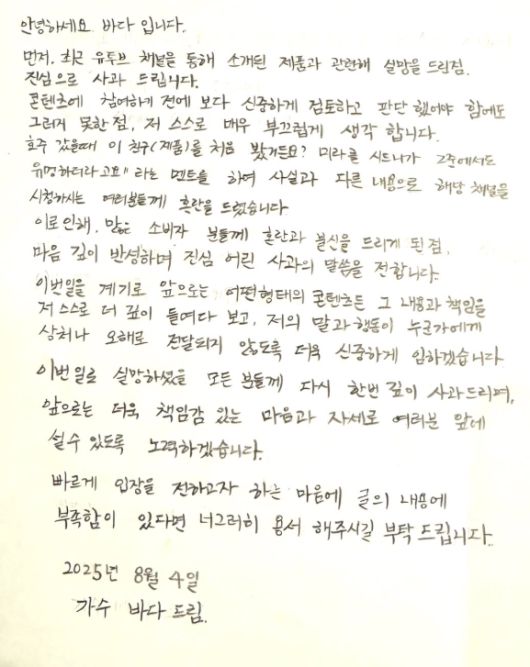 안녕하세요 바다 입니다.
먼저, 최근 유튜브 채널을 통해 소개된 제품과 관련해 실망을 드린점.
진심으로 사과 드립니다.
콘텐츠에 참여하기 전에 보다 신중하게 검토하고 판단 했어야 함에도
그러지 못한 점, 저 스스로 매우 부끄럽게 생각 합니다.
호주 갔을때 이 친구(제품)를 처음 봤거든요? 미라클 시드니가 그중에서도
유명하더라고요" 라는 멘트를 하여 사실과 다른 내용으로 해당 채널을
시청하시는 여러분들께 혼란을 드렸습니다
이로 인해, 많은 소비자 분들께 혼란과 불신을 드리게 된 점,
마음 깊이 반성하며 진심 어린 사과의 말씀을 전합니다.
이번일을 계기로 앞으로는 어떤형태의 콘텐츠든 그 내용과 책임을
저 스스로 더 깊이 들여다 보고, 저의 말과 행동이 누군가에게
상처나 오해로 전달되지 않도록 더욱 신중하게 임하겠습니다
이번 일로 실망하셨을 모든 분들께 다시 한번 깊이 사과드리며,
앞으로는 더욱 책임감 있는 마음과 자세로 여러분 앞에
설수 있도록 노력하겠습니다.
빠르게 입장을 전하고자 하는 마음에 글의 내용에
부족함이 있다면 너그러히 용서 해주시길 부탁 드립니다.
2025년 8월 4일
가수 바다 드림.